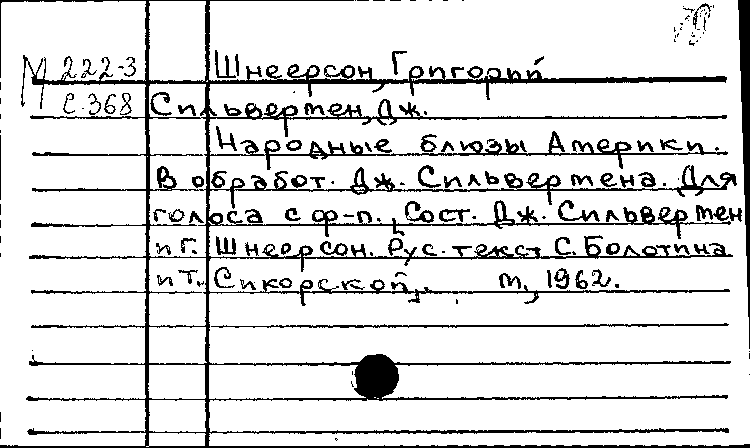 М 222-3 Шнеерсон, Григорий
С-368 Сильвертен, Дж.
Народные блюзы Америки.
В обработ. Дж. Сильвертена. Для
голоса с ф-п. Сост. Дж. Сильвертен
и Г. Шнеерсон. Рус. текст С. Болотина
и Т. Сикорской. М., 1962.